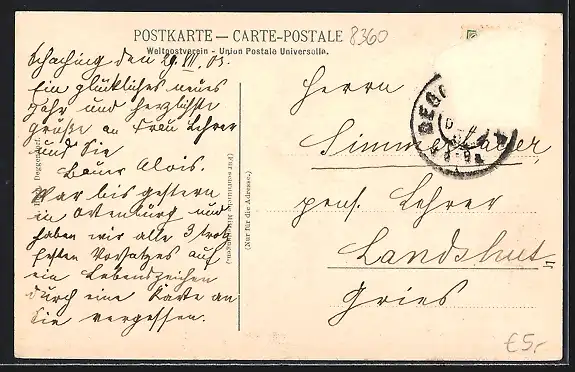 POSTKARTE — CARTE-POSTALE
8360
Weltpostverein - Union Postale Universelle.
Schaching den 29. VII. 03.
Ein glückliches neues
Jahr und herzlichste
Grüße an Frau Lehrer
und Sie
Alois.
War bis gestern
in Ortenburg und
haben wir alle 3 trotz
festen Vorsatzes auf
ein Lebenszeichen
durch eine Karte an
Sie vergessen.
Deggendorf.
(Für schriftliche Mitteilungen.)
(Nur für die Adresse.)
Herrn
DEGG
pens. Lehrer
Landshut-
Gries
€5,-